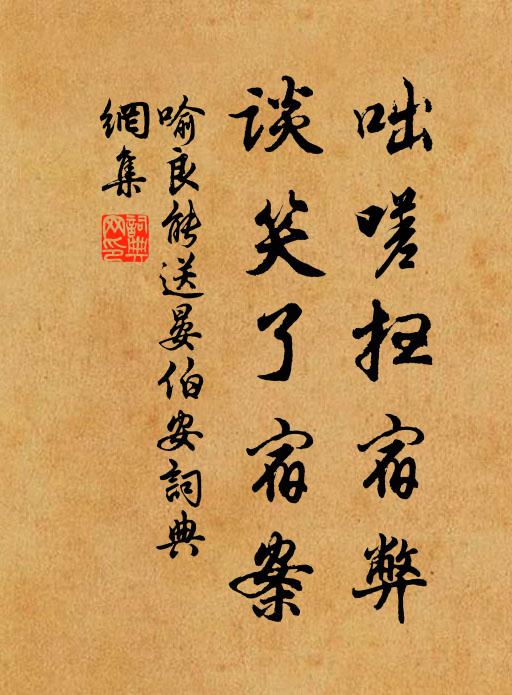 咄嗟扫宿弊
谈笑了宿案
喻良能送晏伯安詞典
網集
詞典網印